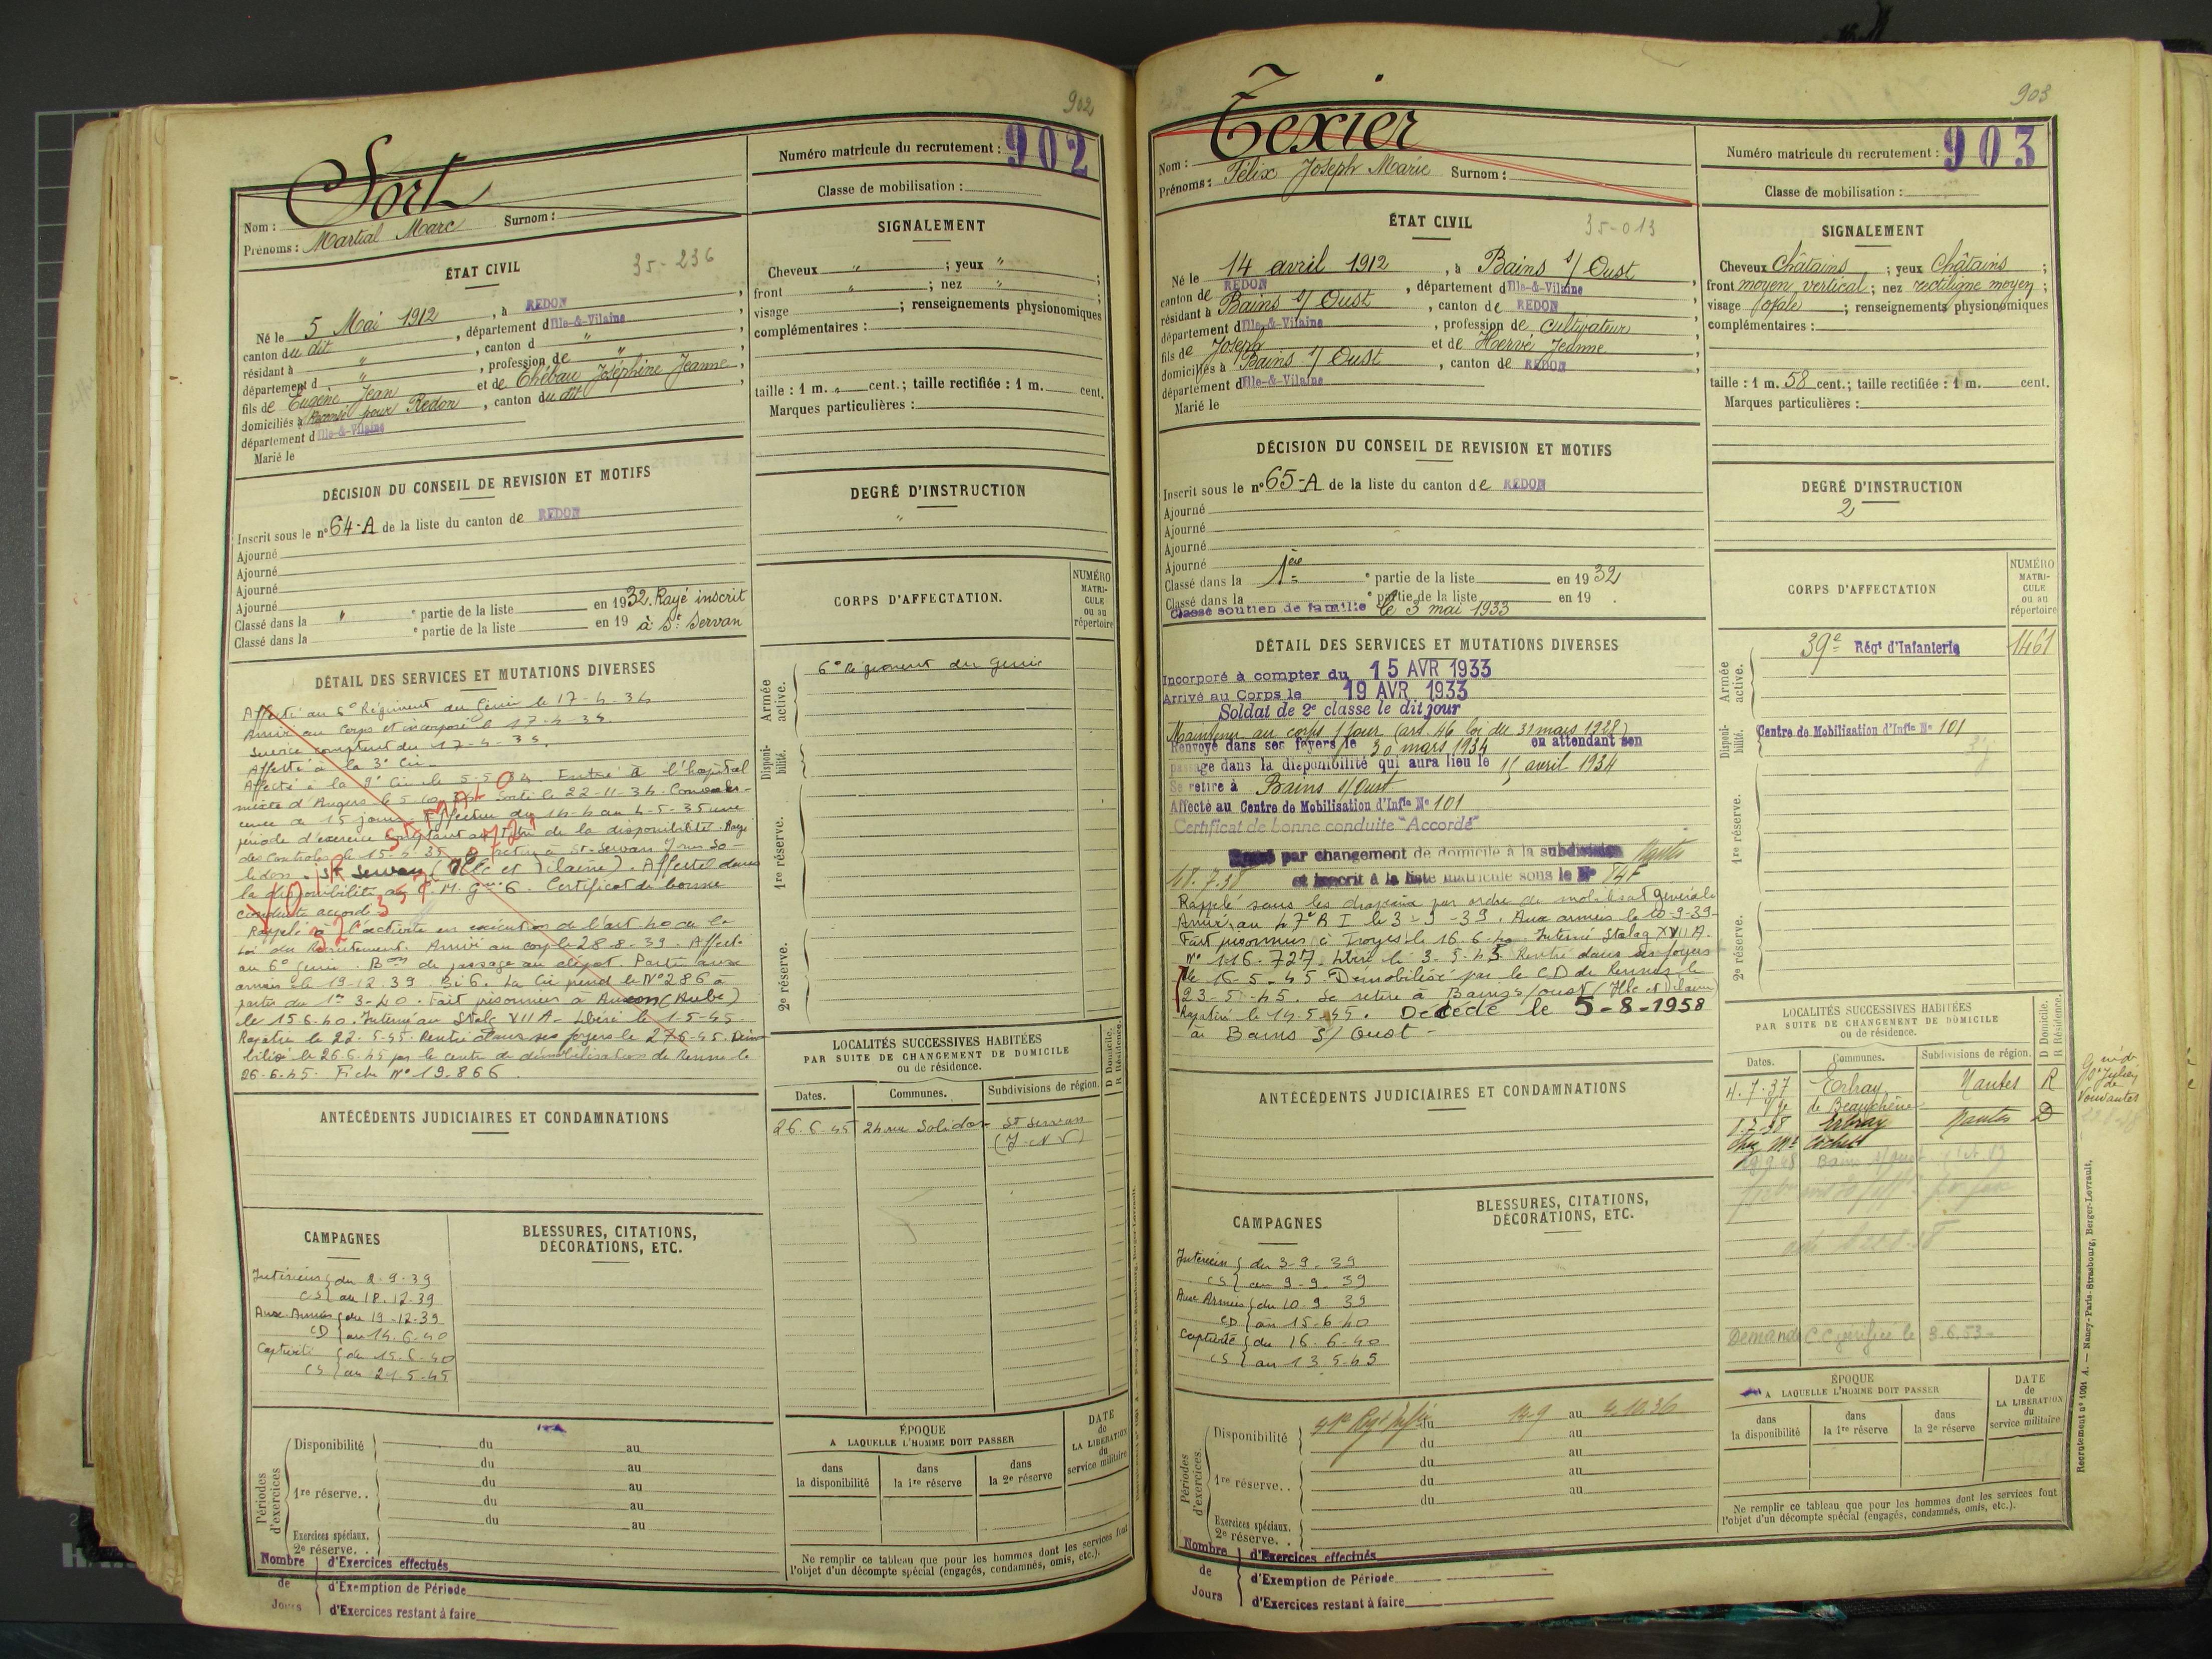 902
Sort
Nom :
Prénoms : Martial Marc Surnom :
Numéro matricule du recrutement : 902
Classe de mobilisation :
ÉTAT CIVIL
35-236
Né le 5 Mai 1912, à REDON,
canton du dit, département d'Ille-&-Vilaine,
résidant à ", canton d ",
département d ", profession de ",
fils de Eugène, Jean et de Thébau Joséphine Jeanne,
domiciliés à pour Redon, canton du dit,
département d'Ille-&-Vilaine
Marié le
SIGNALEMENT
Cheveux " ; yeux " ;
front " ; nez " ;
visage ; renseignements physionomiques
complémentaires :
taille : 1 m. " cent. ; taille rectifiée : 1 m. cent.
Marques particulières :
DÉCISION DU CONSEIL DE REVISION ET MOTIFS
Inscrit sous le n° 64-A de la liste du canton de REDON
Ajourné
Ajourné
Ajourné
Ajourné
Classé dans la " e partie de la liste en 1932. Rayé inscrit
Classé dans la e partie de la liste en 19 à St Servan
DEGRÉ D'INSTRUCTION
"
CORPS D'AFFECTATION.
NUMÉRO MATRI-CULE ou au répertoire
Armée active.
6e Régiment du Génie
Disponi-bilité.
1re réserve.
2e réserve.
DÉTAIL DES SERVICES ET MUTATIONS DIVERSES
Affecté au 6e Régiment du Génie le 17-4-34
Arrivé au Corps et incorporé le 17-4-34.
Service comptant du 17-4-34.
Affecté à la 3e Cie
Affecté à la 9e Cie le 5-5-34. Entré à l'hôpital
mixte d'Angers le 5 Sorti le 22-11-34. Convales-
cence de 15 jours. Effectue du 14-4 au 4-5-35 une
période d'exercice comptant au titre de la disponibilité. Rayé
des contrôles le 15-4-35 se retire à St-Servan 7 rue So-
lidor. St Servan (Ille et Vilaine). Affecté dans
la disponibilité au C. M. Gie 6. Certificat de bonne
conduite accordé
Rappelé à l'activité en exécution de l'art. 40 de la
Loi du Recrutement. Arrivé au corps le 28-8-39. Affecté
au 6e Génie. Bon de passage au dépôt. Partie aux
armées le 19-12-39. Bi 6. La Cie prend le N° 286 à
partir du 1er 3-40. Fait prisonnier à Auxon (Aube)
le 15.6.40. Interné au Stalg VII A. Libéré le 1-5-45.
Rapatrié le 22.5-45. Rentré dans ses foyers le 27-5-45. Démo-
bilisé le 26.6.45 par le centre de démobilisation de Rennes le
26-6.45. Fiche N° 19.866.
ANTÉCÉDENTS JUDICIAIRES ET CONDAMNATIONS
LOCALITÉS SUCCESSIVES HABITÉES
PAR SUITE DE CHANGEMENT DE DOMICILE
ou de résidence.
Dates. Communes. Subdivisions de région. D Domicile. R Résidence.
26.6-45 24 rue Solidor St Servan
(I-et-V)
CAMPAGNES
Intérieur { du 2-9-39
CS { au 18.12-39
Aux Armées { du 19-12-39
CD { au 14.6.40
Captivité { du 15.6-40
CS { au 21-5-45
BLESSURES, CITATIONS,
DÉCORATIONS, ETC.
Périodes d'exercices
Disponibilité du au
du au
1re réserve.. du au
du au
du au
Exercices spéciaux.
2e réserve. .
ÉPOQUE
A LAQUELLE L'HOMME DOIT PASSER
dans la disponibilité
dans la 1re réserve
dans la 2e réserve
DATE de LA LIBÉRATION du service militaire
Ne remplir ce tableau que pour les hommes dont les services font
l'objet d'un décompte spécial (engagés, condamnés, omis, etc.).
Nombre de Jours
d'Exercices effectués
d'Exemption de Période
d'Exercices restant à faire
903
Texier
Nom :
Prénoms : Félix Joseph Marie Surnom :
Numéro matricule du recrutement : 903
Classe de mobilisation :
ÉTAT CIVIL
35-013
Né le 14 avril 1912, à Bains s/ Oust
canton de REDON, département d'Ille-&-Vilaine,
résidant à Bains s/ Oust, canton de REDON
département d'Ille-&-Vilaine, profession de cultivateur
fils de Joseph et de Hervé Jeanne,
domiciliés à Bains s/ Oust, canton de REDON
département d'Ille-&-Vilaine
Marié le
SIGNALEMENT
Cheveux Châtains ; yeux Châtains ;
front moyen, vertical ; nez rectiligne moyen ;
visage ovale ; renseignements physionomiques
complémentaires :
taille : 1 m. 58 cent. ; taille rectifiée : 1 m. cent.
Marques particulières :
DÉCISION DU CONSEIL DE REVISION ET MOTIFS
Inscrit sous le n° 65-A de la liste du canton de REDON
Ajourné
Ajourné
Ajourné
Ajourné
Classé dans la 1ère e partie de la liste en 1932
Classé dans la e partie de la liste en 19 .
Classé soutien de famille le 3 mai 1933
DEGRÉ D'INSTRUCTION
2
CORPS D'AFFECTATION
NUMÉRO MATRI-CULE ou au répertoire
Armée active.
39e Régt d'Infanterie 1461
Disponi-bilité.
Centre de Mobilisation d'Infie N° 101
1re réserve.
2e réserve.
DÉTAIL DES SERVICES ET MUTATIONS DIVERSES
Incorporé à compter du 15 AVR 1933
Arrivé au Corps le 19 AVR 1933
Soldat de 2e classe le dit jour
Maintenu au corps 1 jour (art. 46 loi du 31 mars 1928)
Renvoyé dans ses foyers le 30 mars 1934 en attendant son
passage dans la disponibilité qui aura lieu le 15 avril 1934
Se retire à Bains s/Oust
Affecté au Centre de Mobilisation d'Infie N° 101
Certificat de bonne conduite "Accordé"
par changement de domicile à la subdivision Nantes
18.7.38 et inscrit à la liste matricule sous le N°
Rappelé sous les drapeaux par ordre de mobilisat générale
Arrivé au 47e R I le 3-9-39. Aux armées le 10-9-39-
Fait prisonnier à Troyes le 16.6.40. Interné Stalag XVII A.
N° 116.727. Libéré le 3.5.45 Rentré dans ses foyers
le 16-5-45. Démobilisé par le CD de Rennes le
23-5-45. Se retire à Bains s/oust (Ille et Vilaine)
Rapatrié le 14.5.45. Décédé le 5-8-1958
à Bains S/ Oust -
ANTÉCÉDENTS JUDICIAIRES ET CONDAMNATIONS
LOCALITÉS SUCCESSIVES HABITÉES
PAR SUITE DE CHANGEMENT DE DOMICILE
ou de résidence.
Dates. Communes. Subdivisions de région. D Domicile. R Résidence.
4.7.37 Erbray Nantes R
de Beauchêne
1.7.38 Erbray Nantes D
chez Mr Cochet
Bains s/oust
Demande C C vérifiée le 3.6.53-
St Julien
de
Vouvantes
CAMPAGNES
Intérieur { du 3-9-39
CS { au 9-9-39
Aux Armées { du 10.9 39
CD { au 15-6-40
Captivité { du 16-6-40
CS { au 13 5-45
BLESSURES, CITATIONS,
DÉCORATIONS, ETC.
Périodes d'exercices
Disponibilité 41e Régt Infie du 14-9 au 4.10.36
du au
1re réserve.. du au
du au
du au
Exercices spéciaux.
2e réserve. .
ÉPOQUE
A LAQUELLE L'HOMME DOIT PASSER
dans la disponibilité
dans la 1re réserve
dans la 2e réserve
DATE de LA LIBÉRATION du service militaire
Ne remplir ce tableau que pour les hommes dont les services font
l'objet d'un décompte spécial (engagés, condamnés, omis, etc.).
Nombre de Jours
d'Exercices effectués
d'Exemption de Période
d'Exercices restant à faire
Recrutement n° 1001 A. — Nancy-Paris-Strasbourg, Berger-Levrault.